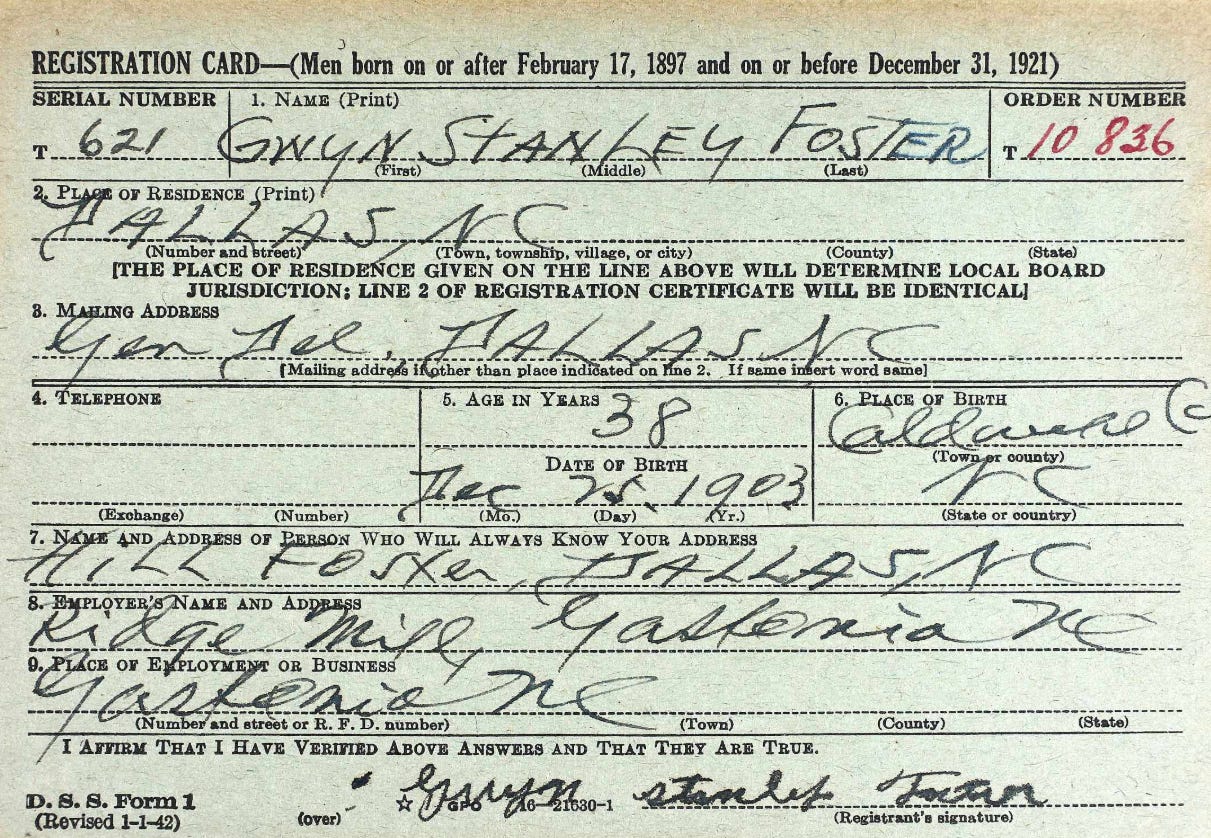 REGISTRATION CARD—(Men born on or after February 17, 1897 and on or before December 31, 1921)
SERIAL NUMBER 1. NAME (Print) ORDER NUMBER
T 621 GWYN STANLEY FOSTER T 10 836
(First) (Middle) (Last)
2. PLACE OF RESIDENCE (Print)
DALLAS, NC
(Number and street) (Town, township, village, or city) (County) (State)
[THE PLACE OF RESIDENCE GIVEN ON THE LINE ABOVE WILL DETERMINE LOCAL BOARD
JURISDICTION; LINE 2 OF REGISTRATION CERTIFICATE WILL BE IDENTICAL]
3. MAILING ADDRESS
Gen Del, DALLAS NC
[Mailing address if other than place indicated on line 2. If same insert word same]
4. TELEPHONE 5. AGE IN YEARS 6. PLACE OF BIRTH
38 Caldwell Co
(Town or county)
DATE OF BIRTH
Dec 25, 1903 NC
(Exchange) (Number) (Mo.) (Day) (Yr.) (State or country)
7. NAME AND ADDRESS OF PERSON WHO WILL ALWAYS KNOW YOUR ADDRESS
HILL FOSTER, DALLAS, NC
8. EMPLOYER'S NAME AND ADDRESS
Ridge Mill, Gastonia NC
9. PLACE OF EMPLOYMENT OR BUSINESS
Gastonia NC
(Number and street or R. F. D. number) (Town) (County) (State)
I AFFIRM THAT I HAVE VERIFIED ABOVE ANSWERS AND THAT THEY ARE TRUE.
Gwyn Stanley Foster
D. S. S. Form 1 GPO 16—21630-1
(Revised 1-1-42) (over) (Registrant's signature)